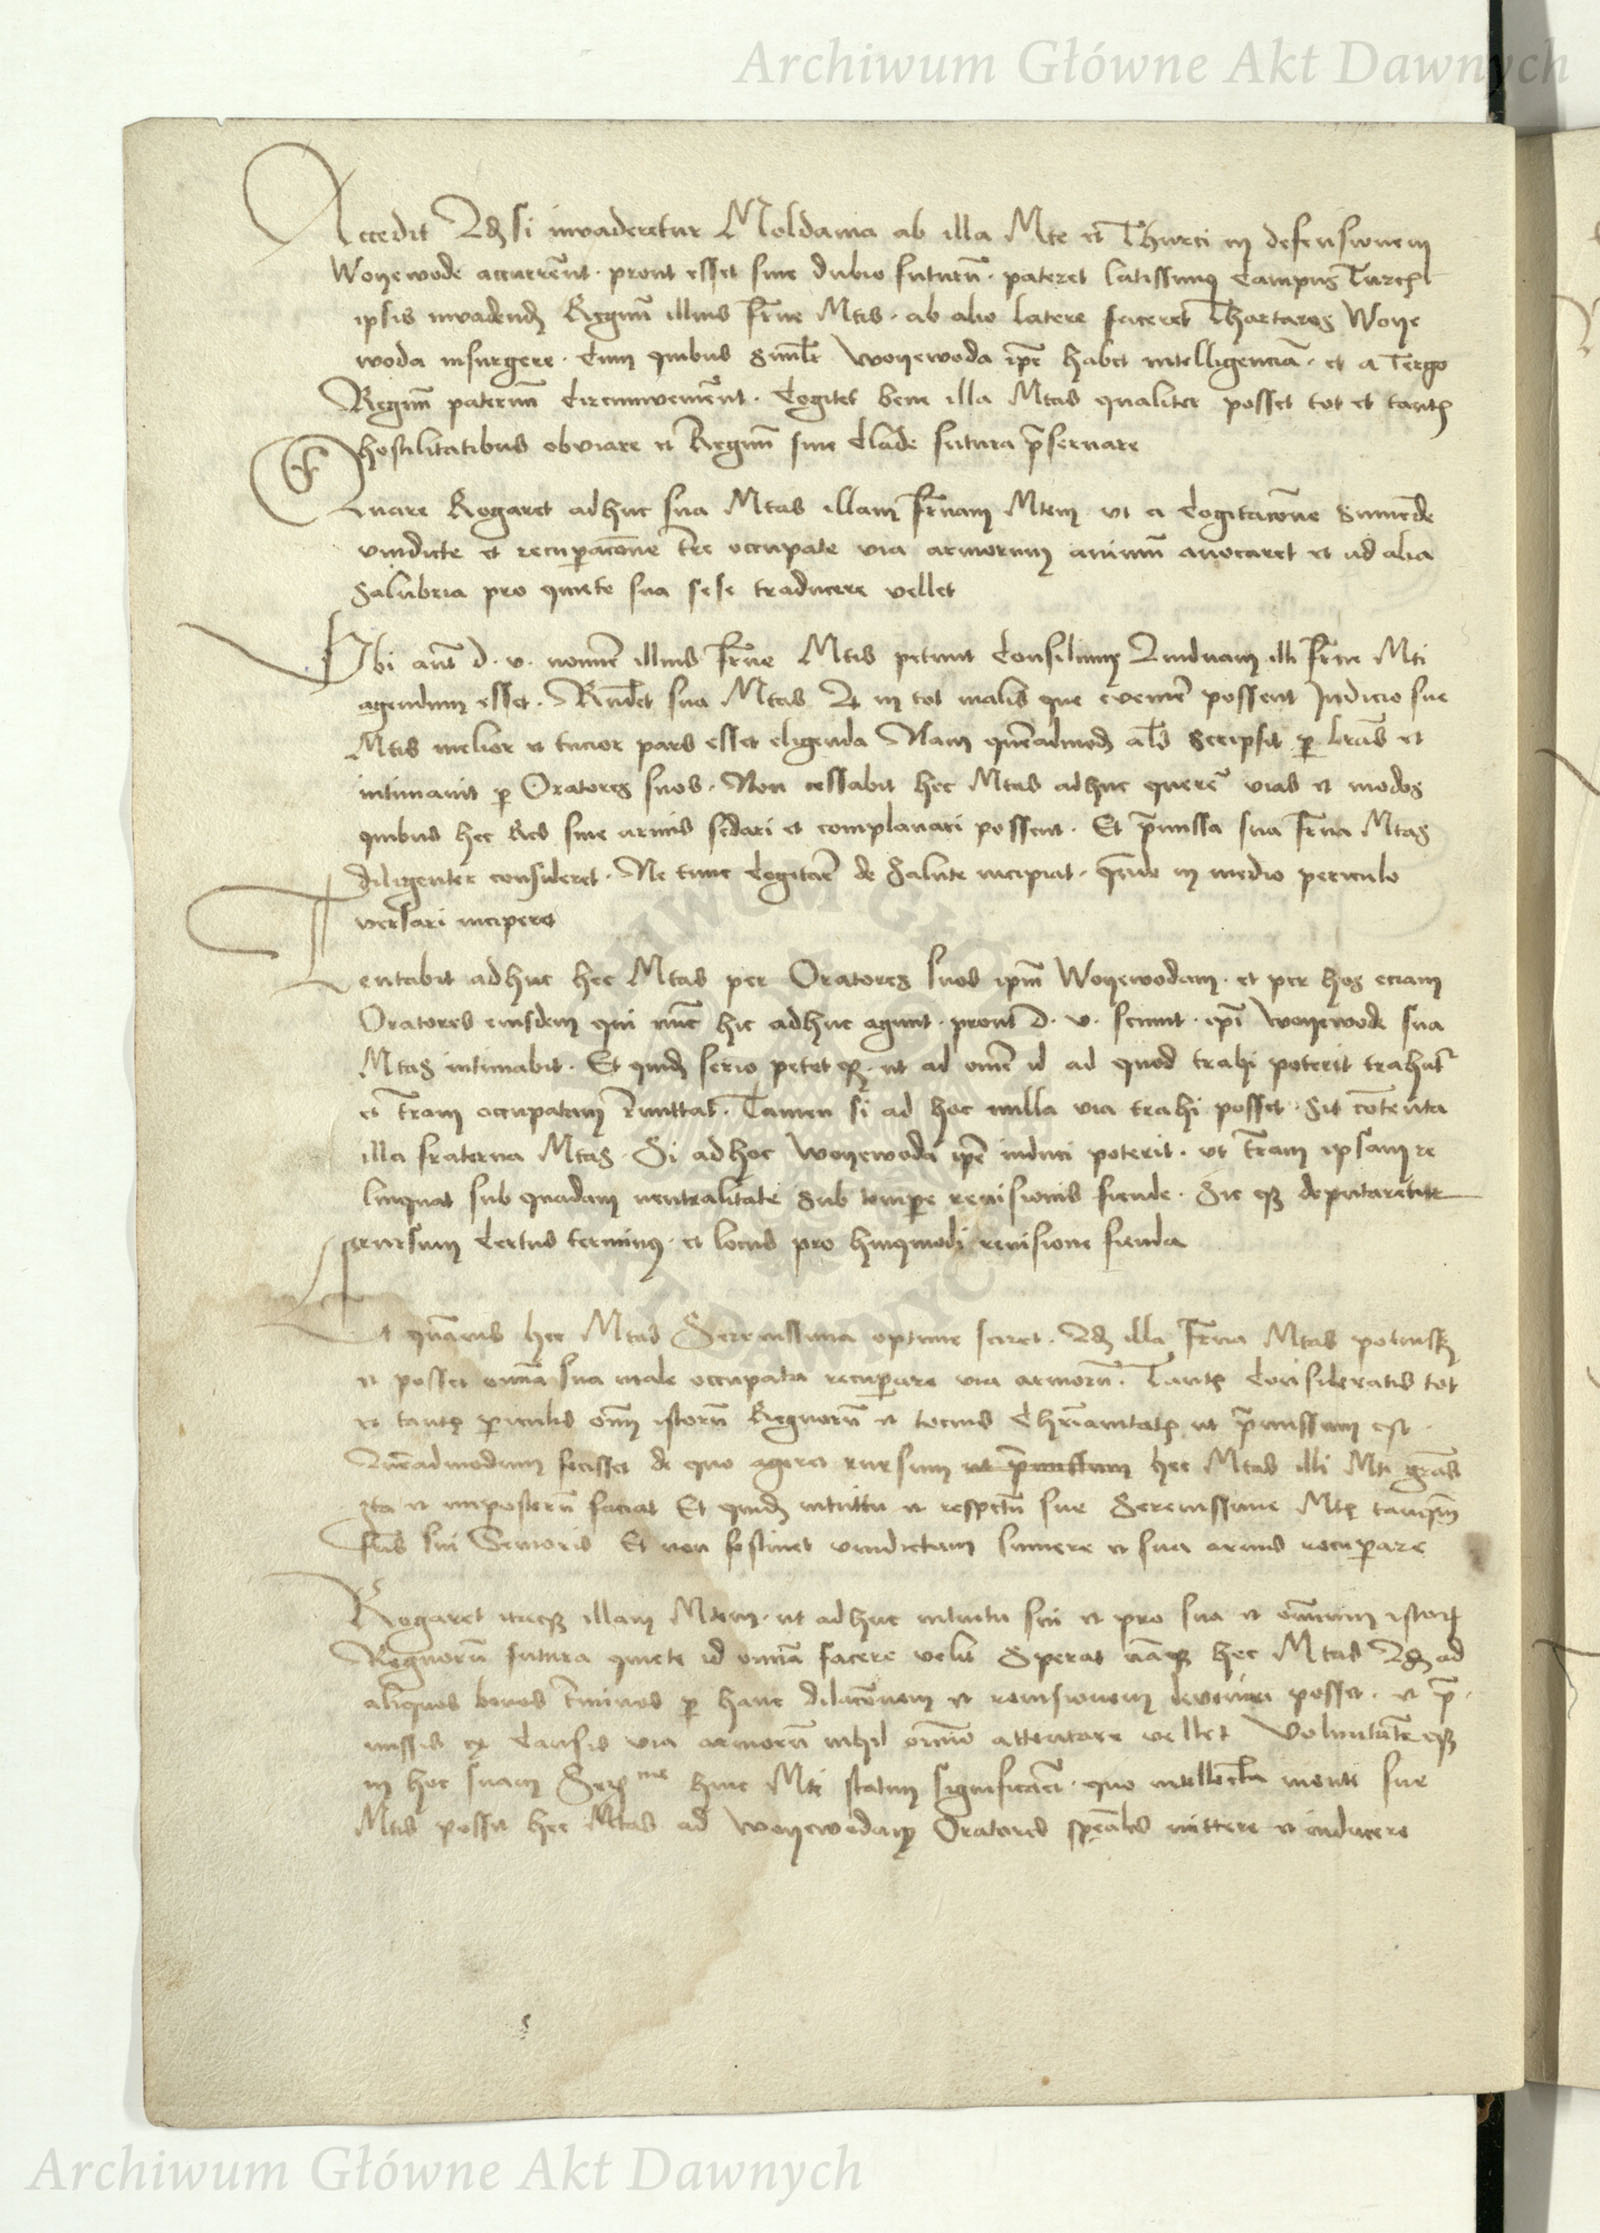 Archiwum Główne Akt Dawnych
Accedit Qꝫ si invaderetur Moldavia ab illa Mte et Thurci in defensionem
Woyewode accurrerēnt · prout esset sine dubio futurū · pateret latissimꝰ Campus Turcꝭ
ipsis invadendꝫ Regnū illius frn̄e Mtis · ab alio latere faceret Thartaros Woye
woda insurgere · Cum quibus simlr̄ Woyewoda ip̄e habet intelligenciā · et a tergo
Regnū paternū Circumvenirēnt · Cogitet bene illa Mtas qualiter posset tot et tantꝭ
hostilitatibus obviare et Regnū sine Clade futura p̄servare
Quare Rogaret adhuc sua Mtas illam frn̄am Mtem ut a Cogitacōne sumēde
vindicte et recuꝑacōne tr̄e occupate via armorum animū avocaret et ad alia
salubria pro quiete sua sese traducere vellet
Ubi aut̄ d · v · nomīe illius frn̄e Mtis petunt Consilium Quidnam illi frn̄e Mti
agendum esset · Rn̄det sua Mtas Qꝫ in tot malis que evenīre possent Judicio sue
Mtis melior et tucior pars esset eligenda Nam quēadmodꝫ als̄ scripsit ꝑ lr̄as et
intimavit ꝑ Oratores suos · Non cessabit hec Mtas adhuc querer̄ vias et modos
quibus hec Res sine armis sedari et complanari possent · Et p̄missa sua frn̄a Mtas
diligenter consideret · Ne tunc Cogitar̄e de salute incipiat · quādo in medio periculo
versari inciperet
Tentabit adhuc hec Mtas per Oratores suos ip̄m Woyewodam · et per hos eciam
Oratores eiusdem qui nūc hic adhuc agunt · prout d · v · sciunt · ip̄i Woyewode sua
Mtas intimabit · Et quidꝫ serio petet eꝫ · ut ad omē id ad quod trahi poterit trahat̄
et tr̄am occupatam r̄mittat · Tamen si ad hoc nulla via trahi posset · sit cōtenta
illa fraterna Mtas · Si ad hoc Woyewoda ip̄e induci poterit · ut tr̄am ipsam re
linquat sub quadam neutralitate sub tempe revisionis fiende · Sic eꝫ deputaretur
rursum Certus terminꝰ · et locus pro huiꝰmodi revisione fienda
Et quāvis hec Mtas Serenissima optime sciret · Qꝫ illa frn̄a Mtas potuissꝫ
et posset om̄ia sua male occupata recuꝑare via armorū · Tantꝭ Consideratis tot
et tantꝭ ꝑiculis om̄i istorū Regnorū et tocius Chr̄ianitatꝭ ut p̄missum est ·
Quēadmodum fecisset de quo ageret rursum ut p̄missum hec Mtas illi Mti grā̄s
Ita et imposterū faciat Et quidꝫ intuitu et respectu sue Serenissime Mtꝭ tanqꝫ
frīs sui Senioris Et non festinet vindictam sumere et sua armis recuꝑare
Rogaret itaqꝫ illam Mtem · ut adhuc intuitu sui et pro sua et om̄nium istorꝝ
Regnorū futura quiete id om̄ia facere velit Sperat nāqꝫ hec Mtas Qꝫ ad
aliquos bonos tr̄minos ꝑ hanc dilacōnem et revisionem deveniri posset · et p̄
missis ex Causis via armorū nihil om̄īo attentare vellet Voluntatē eꝫ
in hoc suam Serꝭme huic Mti statim significari · quo intellecta mente sue
Mtis possit hec Mtas ad Woyewodam Oratores spēales mittere et inducere
Archiwum Główne Akt Dawnych